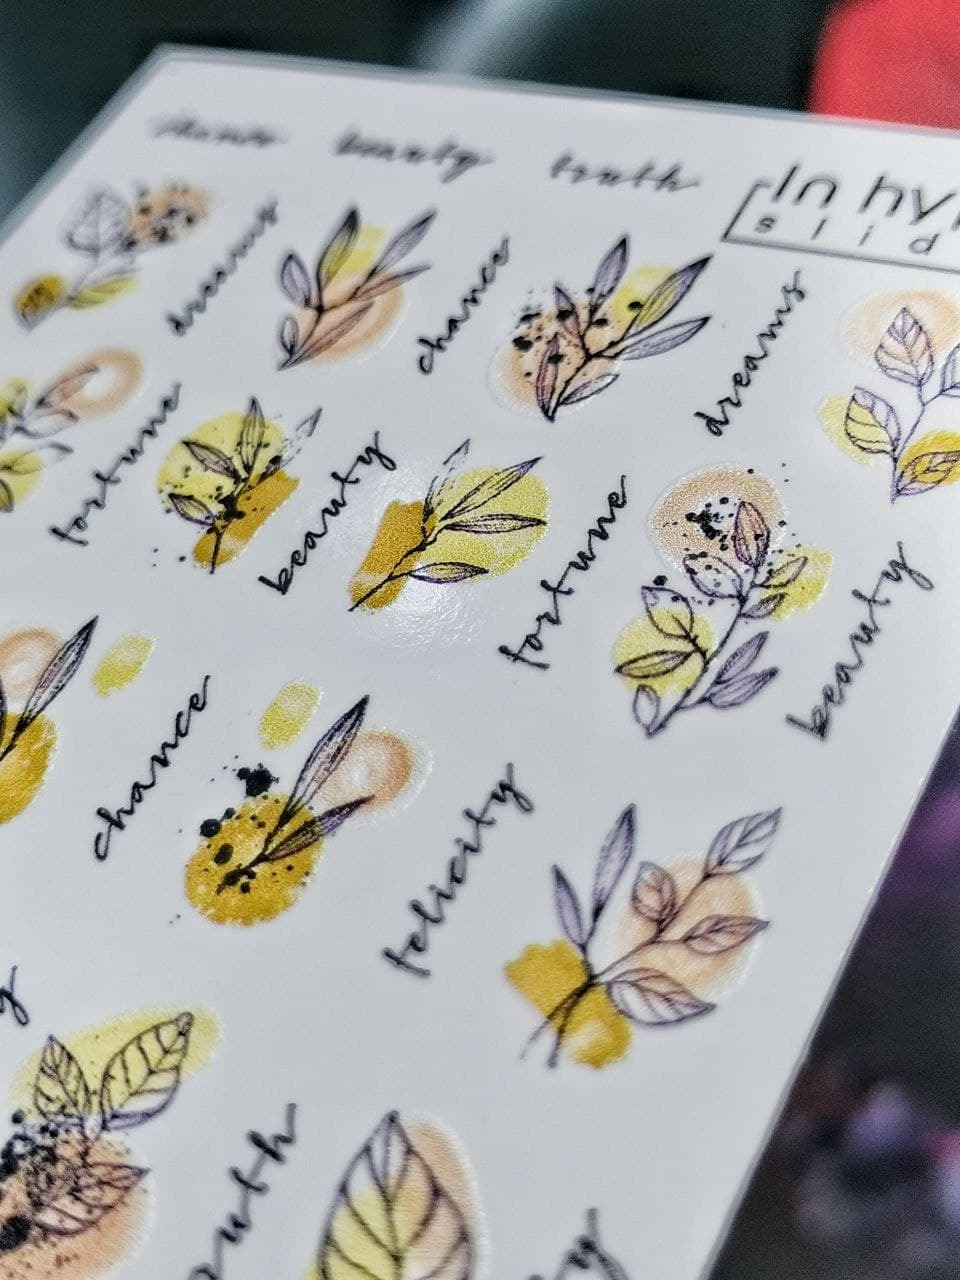 beauty truth
In hy
slid
dreams
chance
dreams
fortune
beauty
fortune
beauty
chance
felicity